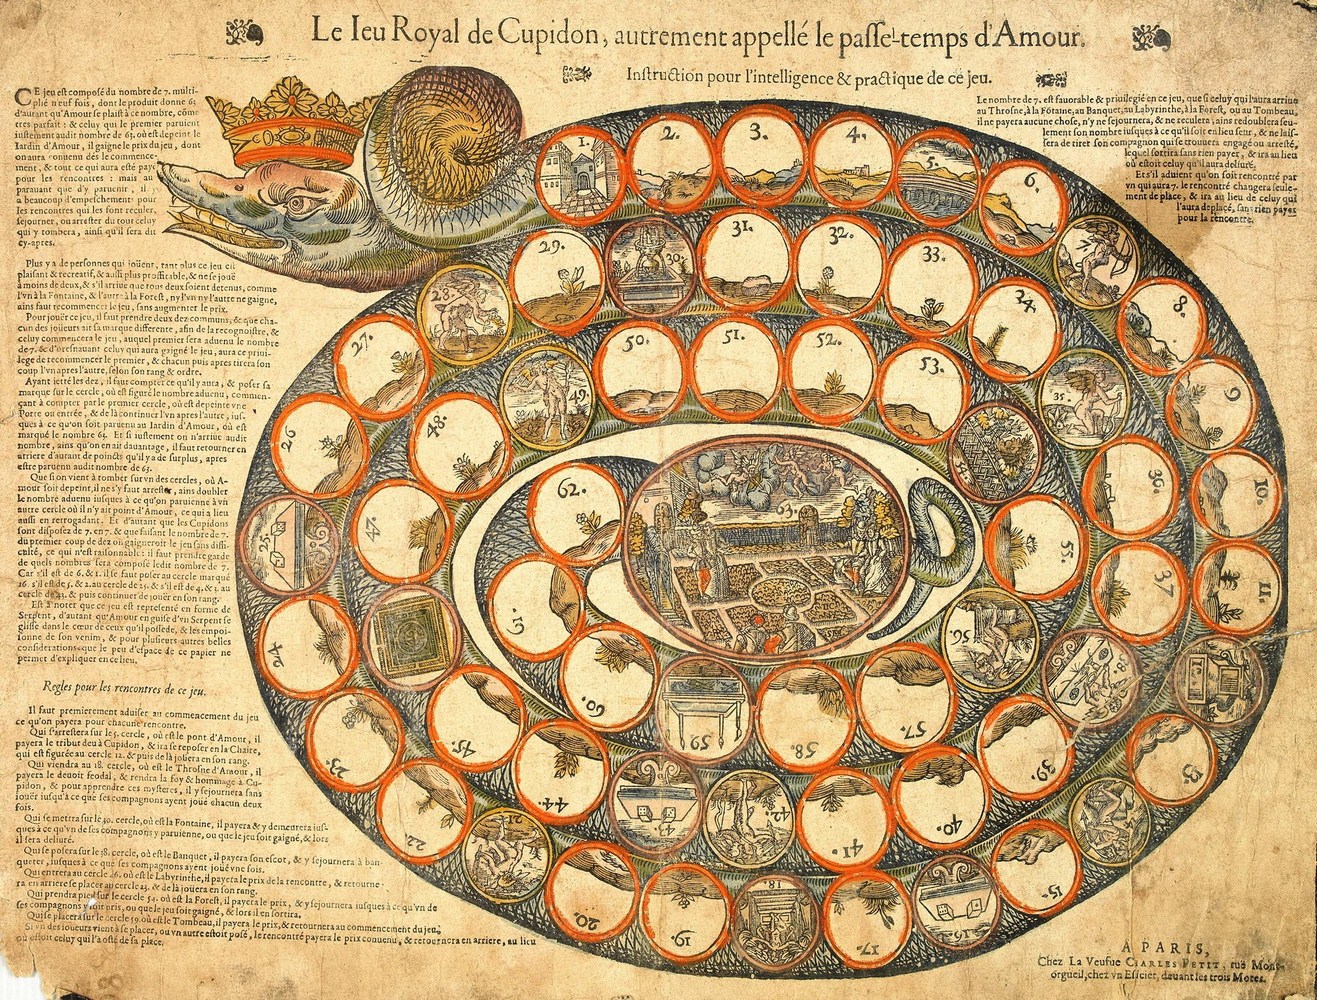 Le Ieu Royal de Cupidon, autrement appellé le passe-temps d'Amour.
Instruction pour l'intelligence & practique de ce jeu.
CE jeu est composé du nombre de 7. multi-
plié neuf fois, dont le produit donne 63
d'autant qu'Amour se plaist à ce nombre, cóme
tres parfait : & celuy qui le premier parvient
justement audit nombre de 63. où est depeint le
Iardin d'Amour, il gaigne le prix du jeu, dont
on aura convenu dés le commence-
ment, & tout ce qui aura esté payé
pour les rencontres : mais au
paravant que d'y parvenir, il y
a beaucoup d'empeschement pour
les rencontres qui les font reculer,
sejourner, ou arrester du tout celuy
qui y tombera, ainsi qu'il sera dit
cy-apres.
Plus y a de personnes qui joüent, tant plus ce jeu est
plaisant & recreatif, & aussi plus proffitable, & ne se joüe
à moins de deux, & s'il arrive que tous deux soient detenus, comme
l'vn à la Fontaine, & l'autre à la Forest, ny l'vn ny l'autre ne gaigne,
ains faut recommencer le jeu, sans augmenter le prix.
Pour joüer ce jeu, il faut prendre deux dez communs, & que cha-
cun des joüeurs ait sa marque differente, afin de la recognoistre, &
celuy commencera le jeu, auquel premier sera advenu le nombre
de 7. & d'oresnavant celuy qui aura gaigné le jeu, aura ce privi-
lege de recommencer le premier, & chacun puis apres tirera son
coup l'vn apres l'autre, selon son rang & ordre.
Ayant jetté les dez, il faut compter ce qu'il y aura, & poser sa
marque sur le cercle, où est figuré le nombre advenu, commen-
çant à compter par le premier cercle, où est depeinte vne
Porte ou entrée, & de là continuer l'vn apres l'autre, jus-
ques à ce qu'on soit parvenu au Iardin d'Amour, où est
marqué le nombre 63. Et si justement on n'arrive audit
nombre, ains qu'on en ait davantage, il faut retourner en
arriere d'autant de poincts qu'il y a de surplus, apres
estre parvenu audit nombre de 63.
Que si on vient à tomber sur vn des cercles, où A-
mour soit depeint, il ne s'y faut arrester, ains doubler
le nombre advenu jusques à ce qu'on parvienne à vn
autre cercle où il n'y ait point d'Amour, ce qui a lieu
aussi en retrogradant. Et d'autant que les Cupidons
sont disposez de 7. en 7. & que faisant le nombre de 7.
du premier coup de dez on gaigneroit le jeu sans diffi-
culté, ce qui n'est raisonnable : il faut prendre garde
de quels nombres sera composé ledit nombre de 7.
Car s'il est de 6. & 1. il se faut poser au cercle marqué
16. s'il est de 5. & 2. au cercle de 25. & s'il est de 4. & 3. au
cercle de 43. & puis continuer de joüer en son rang.
Est à noter que ce jeu est representé en forme de
Serpent, d'autant qu'Amour en guise d'vn Serpent se
glisse dans le cœur de ceux qu'il possede, & les empoi-
sonne de son venim, & pour plusieurs autres belles
considerations que le peu d'espace de ce papier ne
permet d'expliquer en ce lieu.
Regles pour les rencontres de ce jeu.
Il faut premierement adviser au commencement du jeu
ce qu'on payera pour chacune rencontre.
Qui s'arrestera sur le 5. cercle, où est le pont d'Amour, il
payera le tribut deu à Cupidon, & ira se reposer en la Chaire,
qui est figurée au cercle 12. & puis de là joüera en son rang.
Qui viendra au 18. cercle, où est le Throsne d'Amour, il
payera le devoir feodal, & rendra la foy & hommage à Cu-
pidon, & pour apprendre ces mysteres, il y sejournera sans
joüer jusqu'à ce que ses compagnons ayent joüé chacun deux
fois.
Qui se mettra sur le 30. cercle, où est la Fontaine, il payera & y demeurera jus-
ques à ce qu'vn de ses compagnons y parvienne, ou que le jeu soit gaigné, & lors
il sera delivré.
Qui se posera sur le 38. cercle, où est le Banquet, il payera son escot, & y sejournera à ban-
queter, jusques à ce que ses compagnons ayent joüé vne fois.
Qui entrera au cercle 46. où est le Labyrinthe, il payera le prix de la rencontre, & retourne-
ra en arriere se placer au cercle 23. & de là joüera en son rang.
Qui prendra pied sur le cercle 54. où est la Forest, il payera le prix, & y sejournera jusques à ce qu'vn de
ses compagnons y soit pris, ou que le jeu soit gaigné, & lors il en sortira.
Qui se placera sur le cercle 59. où est le Tombeau, il payera le prix, & retournera au commencement du jeu.
Si vn des joüeurs vient à se placer, où vn autre estoit posé, le rencontré payera le prix convenu, & retournera en arriere, au lieu
où estoit celuy qui l'a osté de sa place.
Le nombre de 7. est favorable & privilegié en ce jeu, que si celuy qui l'aura arrive
au Throsne, à la Fótaine, au Banquet, au Labyrinthe, à la Forest, ou au Tombeau,
il ne payera aucune chose, n'y ne sejournera, & ne reculera, ains redoublera seu-
lement son nombre jusques à ce qu'il soit en lieu seur, & ne lais-
sera de tirer son compagnon qui se trouvera engagé ou arresté,
lequel sortira sans rien payer, & ira au lieu
où estoit celuy qu'il aura delivré.
Et s'il advient qu'on soit rencontré par
vn qui aura 7. le rencontré changera seule-
ment de place, & ira au lieu de celuy qui
l'aura deplacé, sans rien payer
pour la rencontre.
1.
2.
3.
4.
5.
6.
8.
9
10.
11.
13.
15.
16.
17.
18.
19.
20.
21.
22.
23.
24
25.
26
27.
28.
29.
30.
31.
32.
33.
34.
35.
36.
37
38.
39.
40.
41.
42.
43.
44.
45.
47.
48.
49.
50.
51.
52.
53.
55.
56.
57.
58.
59.
60.
61
62.
63.
A PARIS,
Chez La Veufue CHARLES PETIT, ruë Mont-
orgueil, chez vn Espicier, devant les trois Mores.